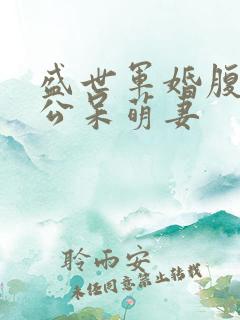 盛世军婚腹
公呆萌妻
聆雨安
未经同意禁止转载